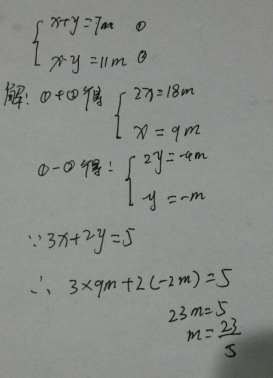 x+y=7m ①
x-y=11m ②
解:①+②得 2x=18m
x=9m
①-②得: 2y=-4m
y=-m
∵3x+2y=5
∴ 3×9m+2(-2m)=5
23m=5
m=23/5